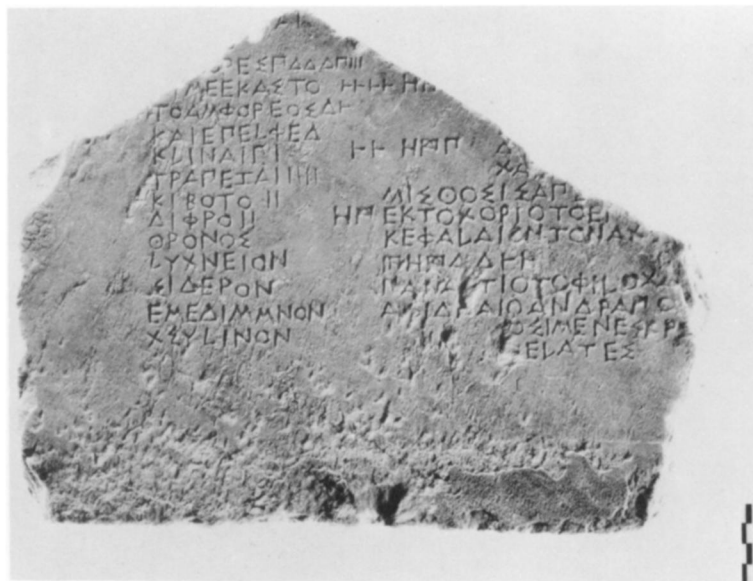 ΟΡΕΣ𐅄ΔΔΔΠΙΙΙ
ΙΜΕΕΚΑΣΤΟ
ΤΟΑΜΦΟΡΕΟΣΔͰ
ΚΛΙΝΑΙΠΙ
ΤΡΑΠΕΖΑΙΙΙΙΙ
ΚΙΒΟΤΟΙΙ
ΔΙΦΡΟΙΙ
ΘΡΟΝΟΣ
ΛΥΧΝΕΙΟΝ
ΣΙΔΕΡΟΝ
ΕΜΕΔΙΜΜΝΟΝ
ΧΣΥΛΙΝΟΝ
ΧΑ
ΜΙΣΘΟΣΙΣΑΠ
ΕΚΤΟΧΟΡΙΟΤΟΕΙ
ΚΕΦΑΛΑΙΟΝΤΟΝΑΧ
ΠΑΝΑΙΤΙΟΤΟΦΙΛΟΧΑ
ΑΡΙΔΑΙΟΑΝΔΡΑΠΟ
ΟΣΙΜΕΝΕΣΚΡ
ΕΛΑΤΕΣ